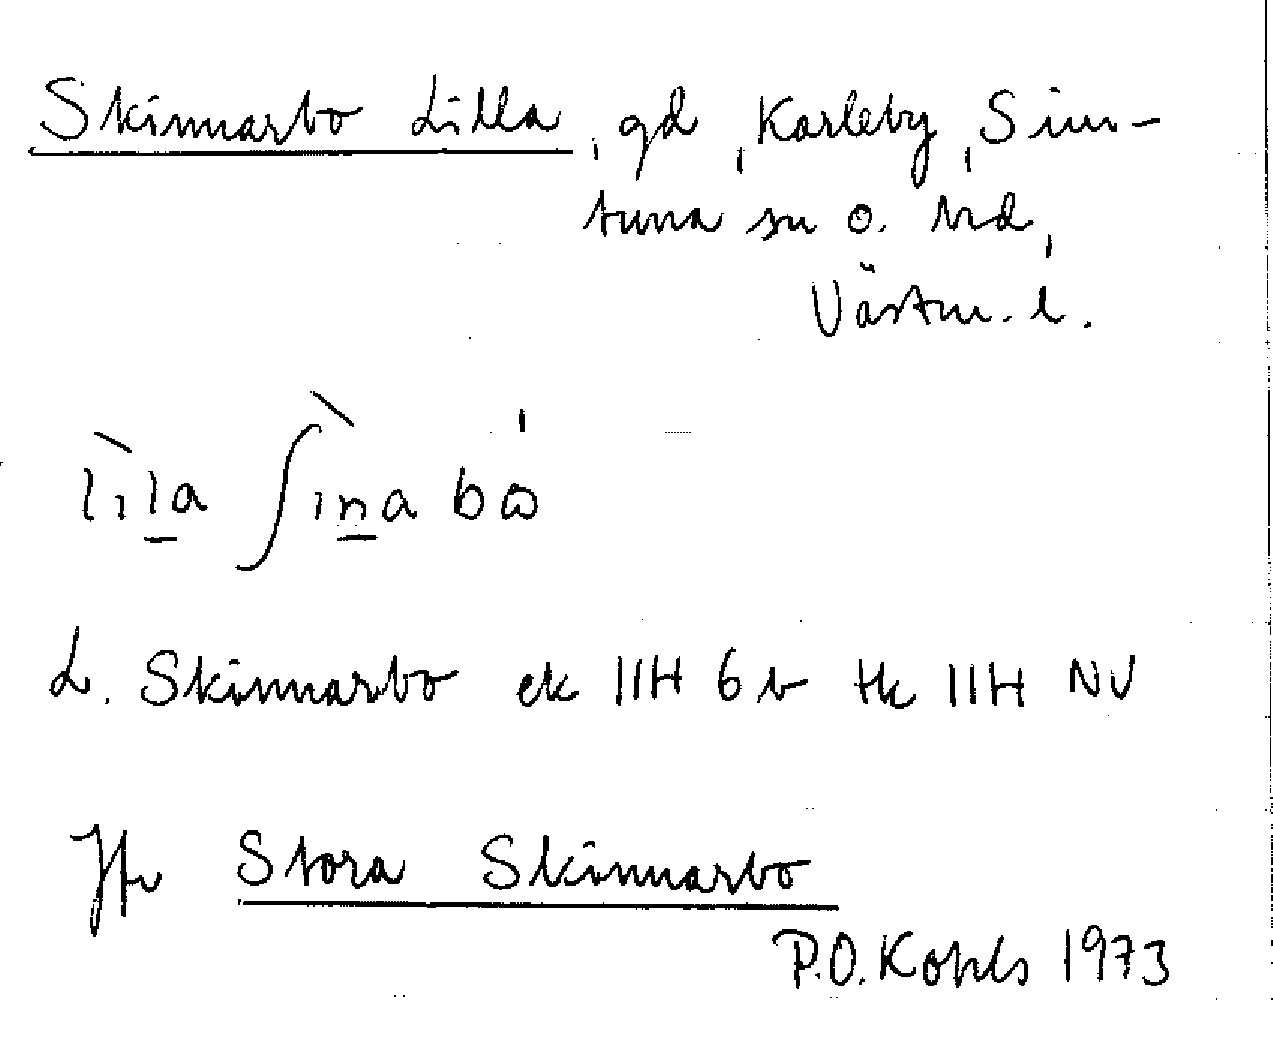 Skinnarbo Lilla, gd, Karleby, Sim-
tuna sn o. hd,
Västm. l.
lìla ʃìnabo̍
L. Skinnarbo ek 11H 6b tk 11H NV
Jfr Stora Skinnarbo
P.O. Kohls 1973